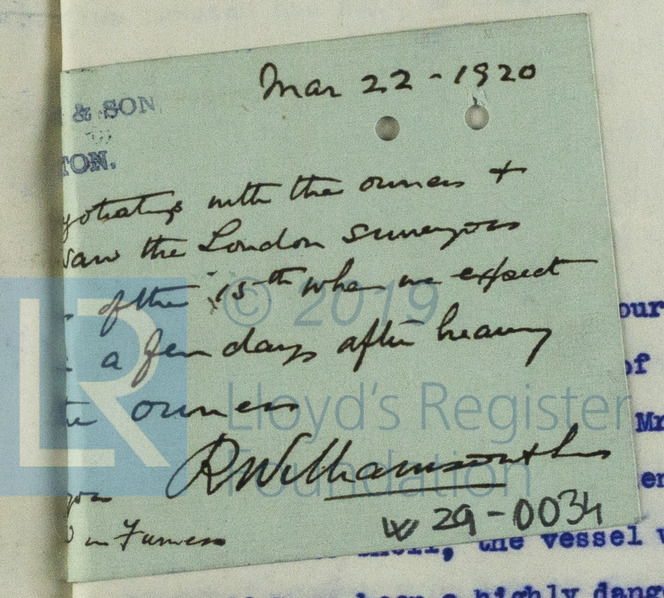 Mar 22 - 1920
& SON
TON.
gotiating with the owners +
saw the London surveyors
of the 15th when we expect
a few days after hearing
the owners
R Williamson & Son
in Furness
W29-0034
© 2019
LR
Lloyd's Register
Foundation
our
of
Mr
en
shell, the vessel w
been a highly dang